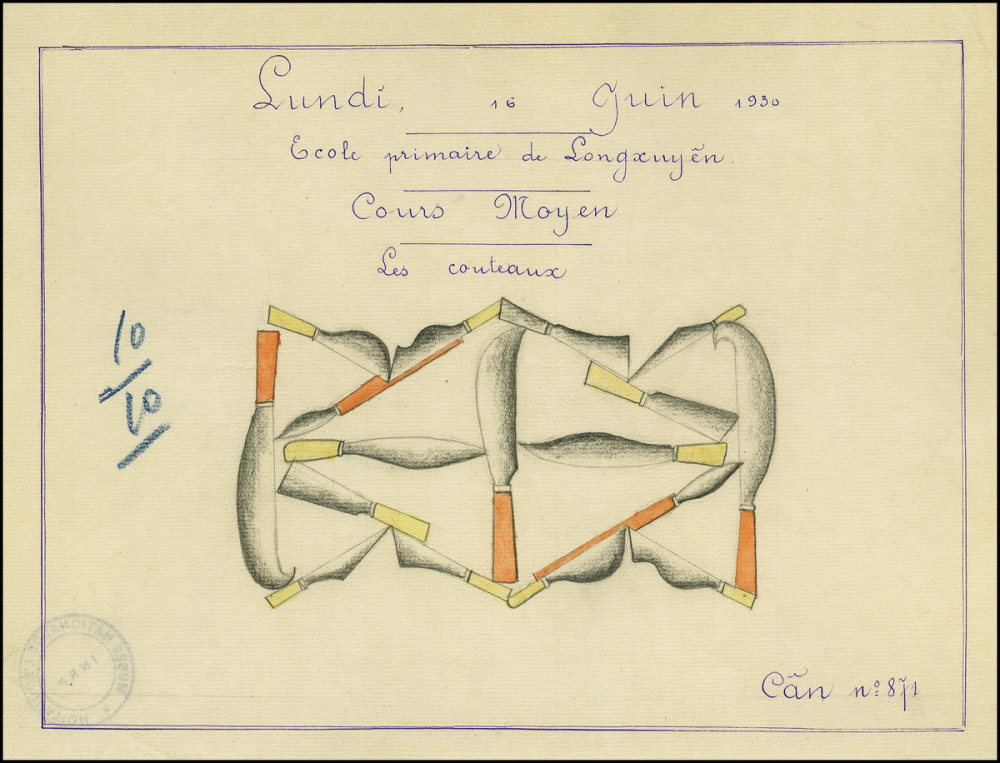 Lundi, 16 Juin 1930
Ecole primaire de Longxuyẽn.
Cours Moyen
Les couteaux
10
10
Cãn nº 871